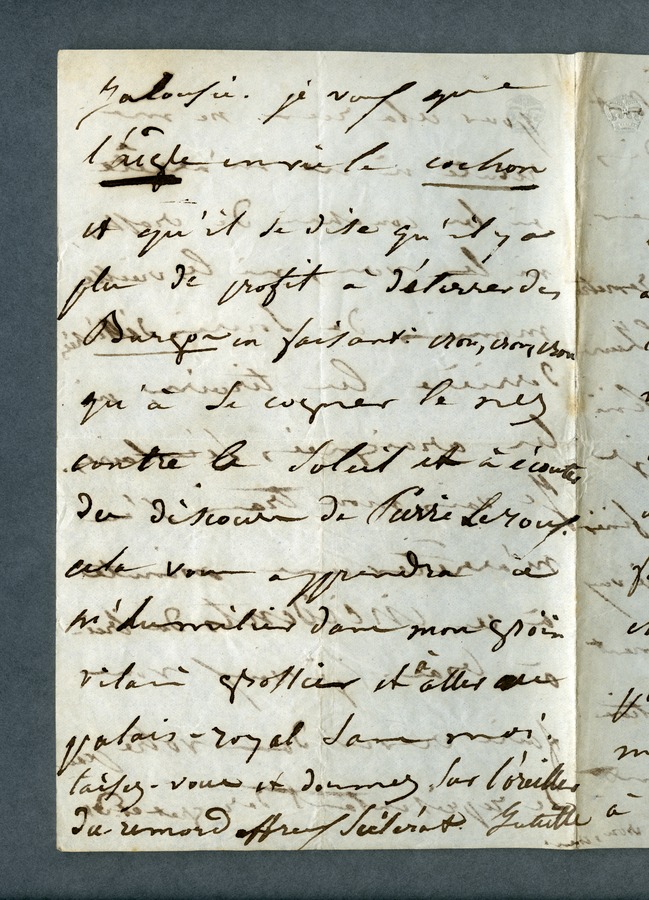 jalousie. je veux que
l'aigle envie le cochon
et qu'il se dise qu'il y a
plus de profit à déterrer des
en faisant: cron, cron, cron
qu'à se cogner le nez
contre le soleil et à écouter
du discours de Pierre Leroux.
cela vous apprendra à
m'humilier dans mon groin
vilain grossier et à aller au
palais-royal sans moi.
taisez-vous et dormez sur l'oreiller
du remord affreux scélérat.